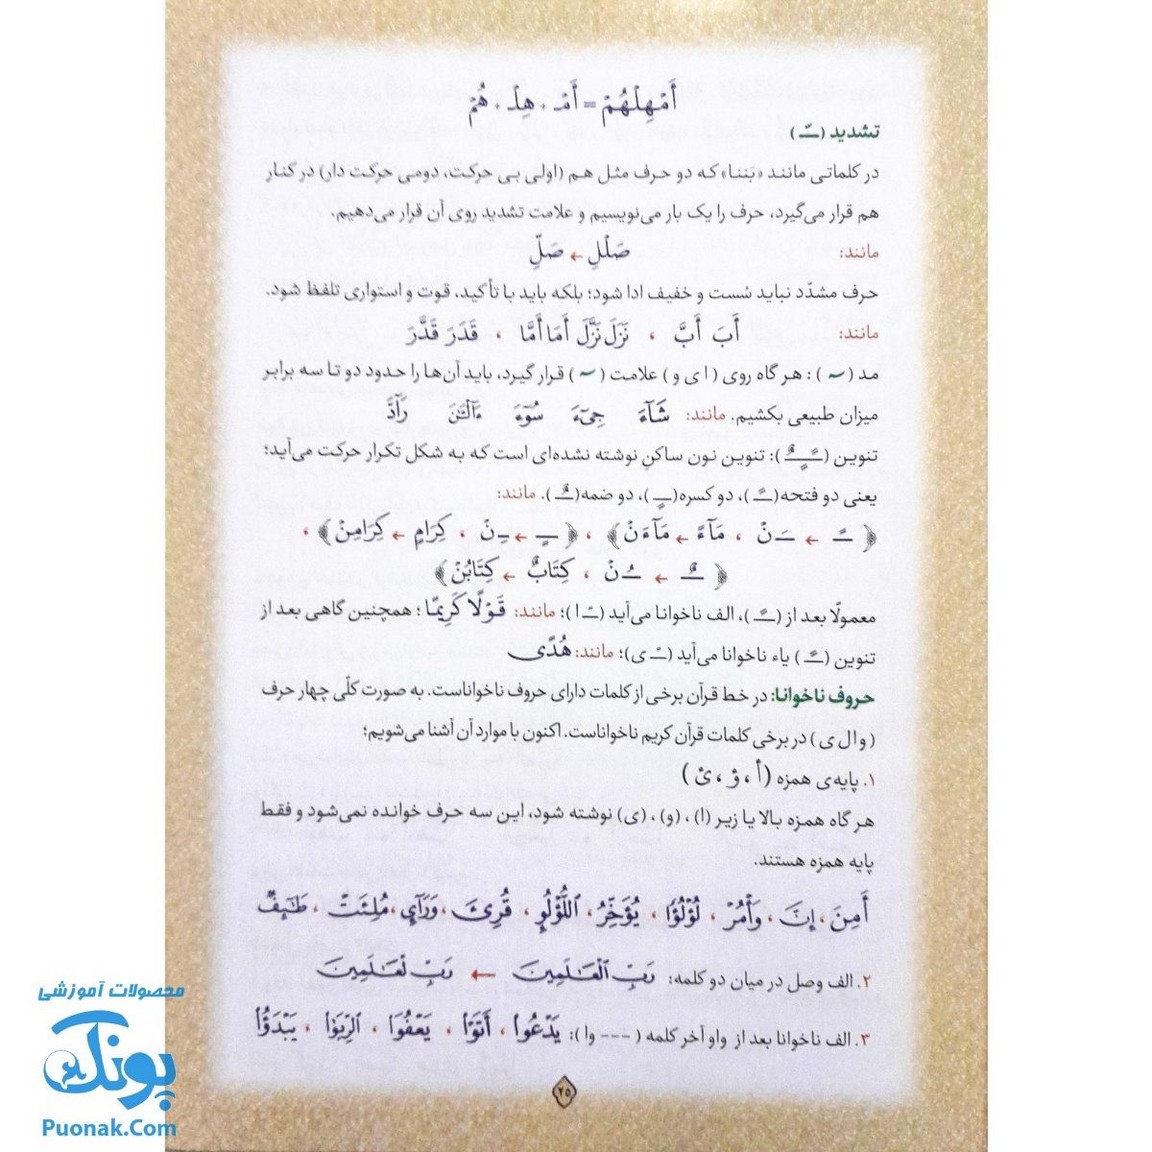 أَمْهِلْهُمْ = أَمْـ + هِلْـ + هُمْ
تشدید (ـّـ)
در کلماتی مانند «بَننا» که دو حرف مثل هم (اولی بی حرکت، دومی حرکت دار) در کنار
هم قرار می‌گیرد، حرف را یک بار می‌نویسیم و علامت تشدید روی آن قرار می‌دهیم.
مانند: صَلْلِ ← صَلِّ
حرف مشدّد نباید سُست و خفیف ادا شود؛ بلکه باید با تأکید، قوت و استواری تلفظ شود.
مانند: أَبَ أَبَّ ، نَزَلَ نَزَّلَ أَمَا أَمَّا ، قَدَرَ قَدَّرَ
مد (ـٓ) : هر گاه روی (ا ی و) علامت (ـٓ) قرار گیرد، باید آن‌ها را حدود دو تا سه برابر
میزان طبیعی بکشیم. مانند: شَآءَ جِیٓءَ سُوٓءَ ءَآلْـَٰنَ رَآدَّ
تنوین (ـًـٍـٌ): تنوین نون ساکنِ نوشته نشده‌ای است که به شکل تکرار حرکت می‌آید؛
یعنی دو فتحه(ـًـ)، دو کسره(ـٍـ)، دو ضمه(ـٌـ). مانند:
﴿ ـًـ ← ـَـ نْ ، مَآءً ← مَآءَنْ﴾ ، ﴿ ـٍـ ← ـِـ نْ ، کِرَامٍ ← کِرَامِنْ﴾ ،
﴿ ـٌـ ← ـُـ نْ ، کِتَابٌ ← کِتَابُنْ﴾
معمولًا بعد از (ـًـ)، الف ناخوانا می‌آید (ـًـ ا)؛ مانند: قَوْلًا کَرِیمًا ؛ همچنین گاهی بعد از
تنوین (ـًـ) یاء ناخوانا می‌آید (ـًـ ی)؛ مانند: هُدًی
حروف ناخوانا: در خط قرآن برخی از کلمات دارای حروف ناخواناست. به صورت کلّی چهار حرف
( و ا ل ی ) در برخی کلمات قرآن کریم ناخواناست. اکنون با موارد آن آشنا می‌شویم؛
۱. پایه‌ی همزه (أ ، ؤ ، ئ )
هر گاه همزه بالا یا زیر (ا) ، (و) ، (ی) نوشته شود، این سه حرف خوانده نمی‌شود و فقط
پایه همزه هستند.
أَمِنَ ، إِنَ ، وَأْمُرْ ، لُؤْلُؤًا ، یُؤَخِّرُ ، ٱللُّؤْلُؤِ ، قُرِئَ ، وَرَآیِٕ ، مُلِئَتْ ، طَـٰٓئِفٌ
۲. الف وصل در میان دو کلمه: رَبِّ الْعَـٰلَمِینَ ← رَبِّ لْعَـٰلَمِینَ
۳. الف ناخوانا بعد از واو آخر کلمه ( --- وا ): یَدْعُوا ، أَتَوْا ، یَعْفُوَا ، الرِّبَوٰا ، یَبْدَؤُا
۲۵
محصولات آموزشی
پونک
Puonak.Com